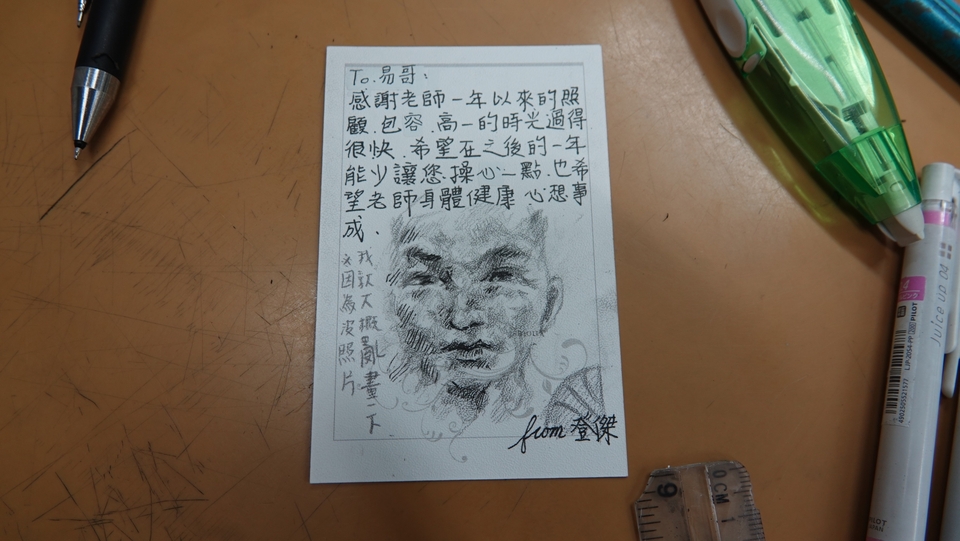 To. 易哥：
感謝老師一年以來的照
顧.包容.高一的時光過得
很快.希望在之後的一年
能少讓您操心一點.也希
望老師身體健康 心想事
成.
※因為沒照片
我就大概亂畫一下
from 登傑
Juice up 04
PILOT
LJP-20S4-PP
4902505521577
PILOT
JAPAN
0CM 1
6